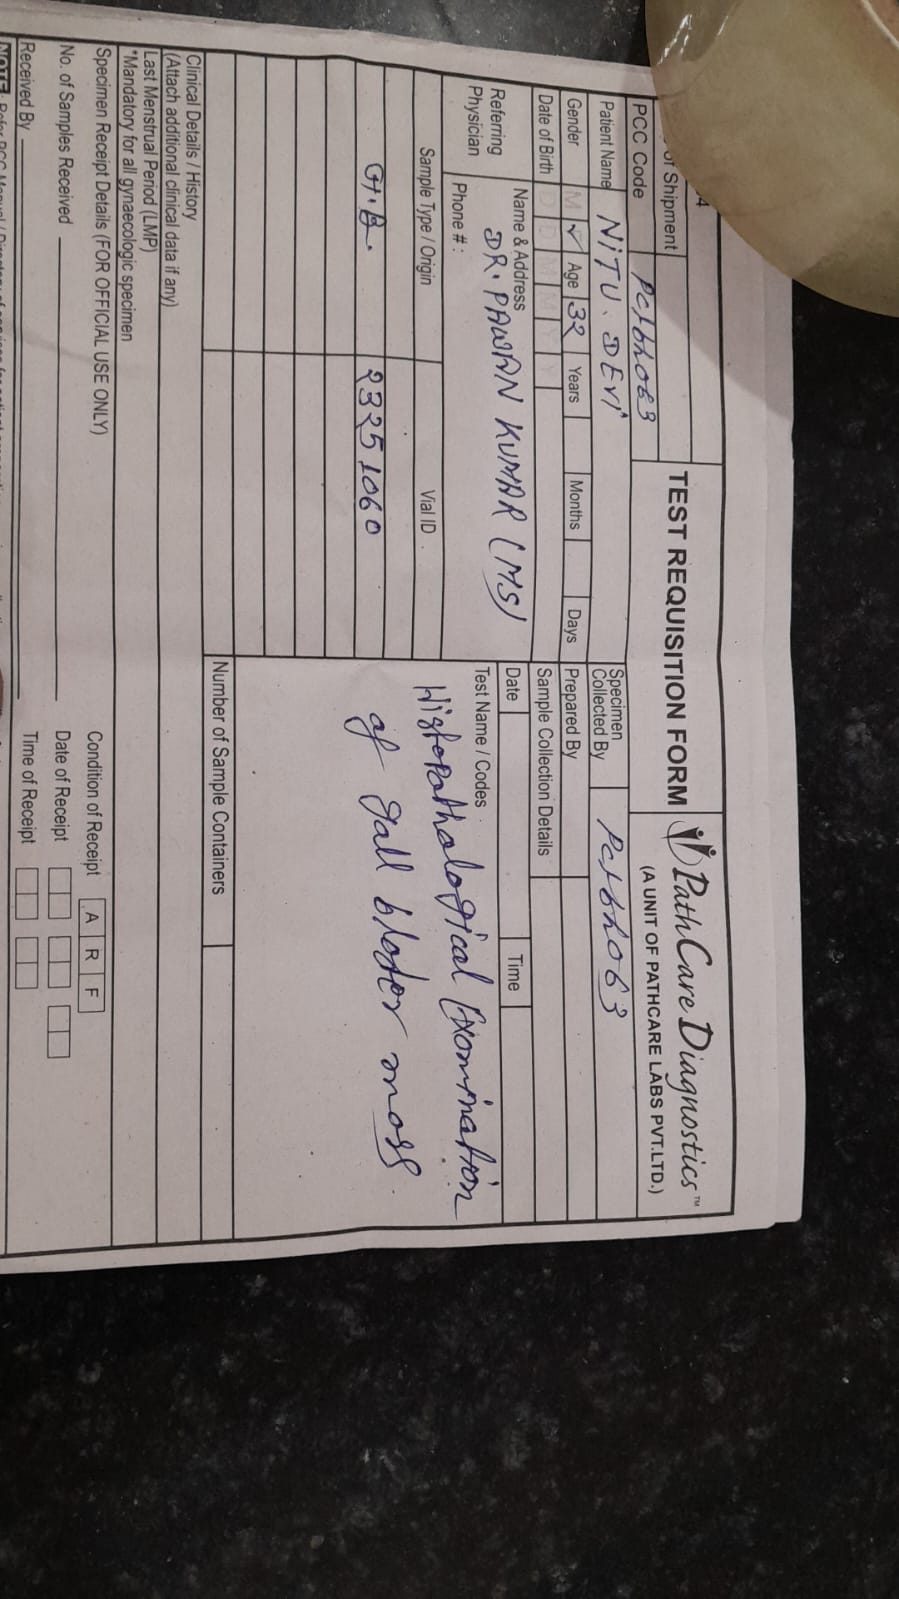 TEST REQUISITION FORM
PathCare Diagnostics™
(A UNIT OF PATHCARE LABS PVT.LTD.)
of Shipment
PCC Code
Patient Name NITU. DEVI
Gender M ✓ Age 32 Years Months Days
Date of Birth D D M M Y Y
Referring Physician
Name & Address
DR. PAWAN KUMAR (MS)
Phone # :
Specimen Collected By
Prepared By
Sample Collection Details
Date Time
Sample Type / Origin Vial ID
G.B. 23251060
Test Name / Codes
Histopathological Examination
of gall blader mass.
Number of Sample Containers
Clinical Details / History
(Attach additional clinical data if any)
Last Menstrual Period (LMP)
*Mandatory for all gynaecologic specimen
Specimen Receipt Details (FOR OFFICIAL USE ONLY)
Condition of Receipt A R F
No. of Samples Received
Date of Receipt
Received By
Time of Receipt
NOTE